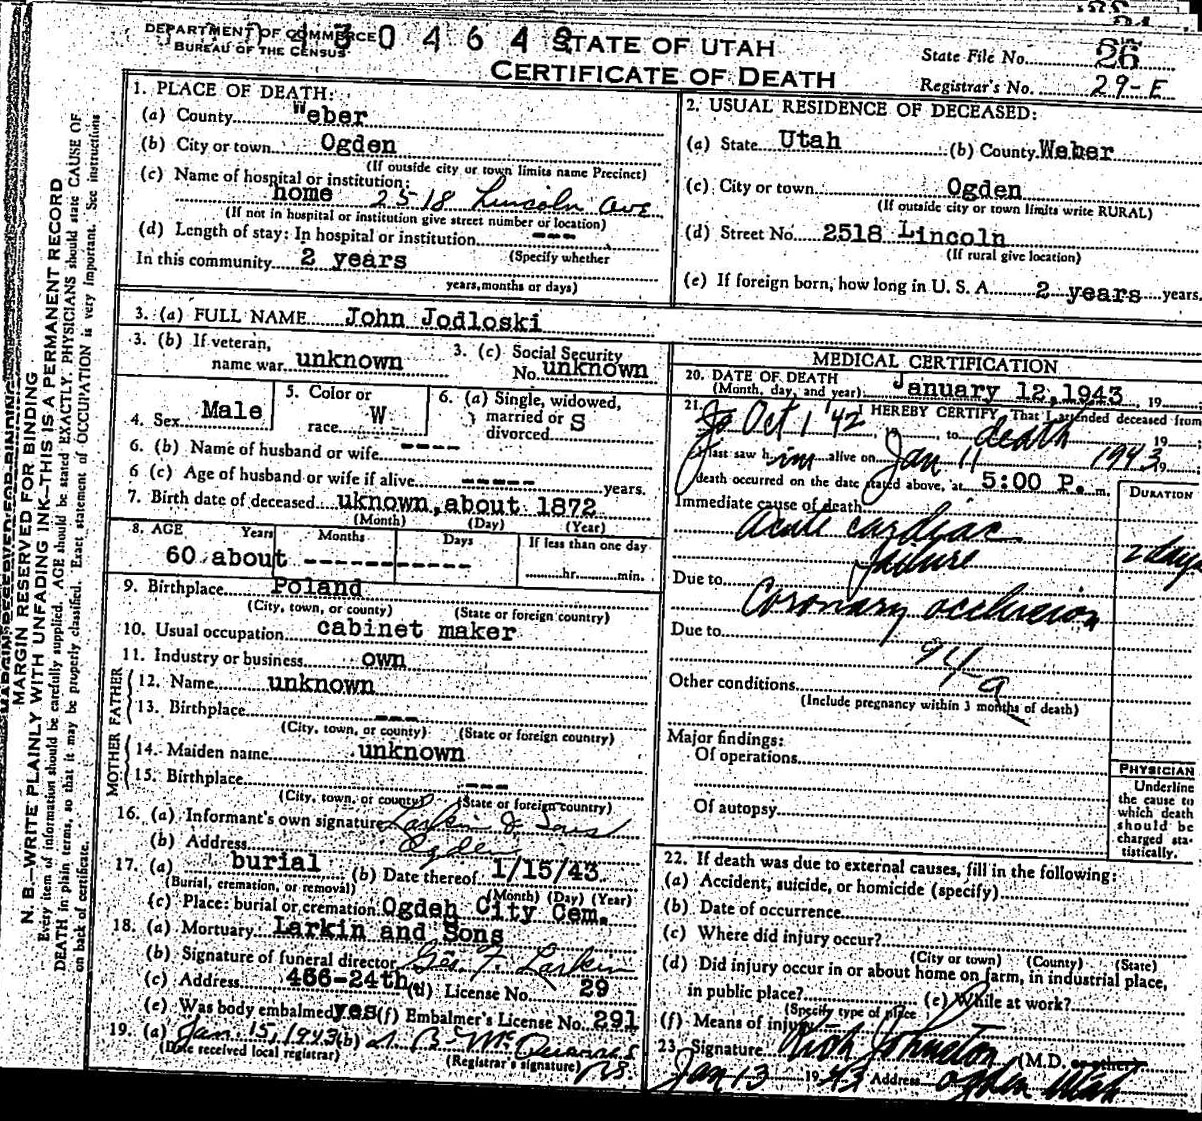 DEPARTMENT OF COMMERCE
BUREAU OF THE CENSUS
3 0 4 6 4
STATE OF UTAH
CERTIFICATE OF DEATH
State File No. 26
Registrar's No. 29-E
MARGIN RESERVED FOR BINDING
N. B.—WRITE PLAINLY WITH UNFADING INK—THIS IS A PERMANENT RECORD
Every item of information should be carefully supplied. AGE should be stated EXACTLY. PHYSICIANS should state CAUSE OF
DEATH in plain terms, so that it may be properly classified. Exact statement of OCCUPATION is very important. See instructions
on back of certificate.
1. PLACE OF DEATH:
(a) County Weber
(b) City or town Ogden
(If outside city or town limits name Precinct)
(c) Name of hospital or institution:
home 2518 Lincoln Ave
(If not in hospital or institution give street number or location)
(d) Length of stay: In hospital or institution ---
(Specify whether
In this community 2 years
years, months or days)
2. USUAL RESIDENCE OF DECEASED:
(a) State Utah (b) County Weber
(c) City or town Ogden
(If outside city or town limits write RURAL)
(d) Street No. 2518 Lincoln
(If rural give location)
(e) If foreign born, how long in U. S. A. 2 years years.
3. (a) FULL NAME John Jodloski
3. (b) If veteran,
name war unknown
3. (c) Social Security
No. unknown
4. Sex Male
5. Color or
race W
6. (a) Single, widowed,
married or S
divorced
6. (b) Name of husband or wife ----
6 (c) Age of husband or wife if alive ----- years.
7. Birth date of deceased uknown, about 1872
(Month) (Day) (Year)
8. AGE Years Months Days If less than one day
60 about ------------
hr. min.
9. Birthplace Poland
(City, town, or county) (State or foreign country)
10. Usual occupation cabinet maker
11. Industry or business own
FATHER
12. Name unknown
13. Birthplace ---
(City, town, or county) (State or foreign country)
MOTHER
14. Maiden name unknown
15. Birthplace ---
(City, town, or county) (State or foreign country)
16. (a) Informant's own signature Larkin & Sons
(b) Address Ogden
17. (a) burial (b) Date thereof 1/15/43
(Burial, cremation, or removal) (Month) (Day) (Year)
(c) Place: burial or cremation Ogden City Cem.
18. (a) Mortuary Larkin and Sons
(b) Signature of funeral director Geo. F. Larkin
(c) Address 466-24th (d) License No. 29
(e) Was body embalmed yes (f) Embalmer's License No. 291
19. (a) Jan. 15, 1943 (b)
(Date received local registrar) (Registrar's signature)
MEDICAL CERTIFICATION
20. DATE OF DEATH
(Month, day, and year) January 12, 1943, 19
21. I HEREBY CERTIFY, That I attended deceased from
Oct 1 '42, 19 to death 19
I last saw him alive on Jan 11 1943 19
death occurred on the date stated above, at 5:00 P. m.
DURATION
Immediate cause of death
Acute cardiac
failure 2 days
Due to
Coronary occlusion
Due to
94-a
Other conditions
(Include pregnancy within 3 months of death)
Major findings:
Of operations
Of autopsy
PHYSICIAN
Underline
the cause to
which death
should be
charged sta-
tistically.
22. If death was due to external causes, fill in the following:
(a) Accident, suicide, or homicide (specify)
(b) Date of occurrence
(c) Where did injury occur?
(City or town) (County) (State)
(d) Did injury occur in or about home on farm, in industrial place,
in public place? (e) While at work?
(Specify type of place)
(f) Means of injury
23. Signature Rich Johnston (M.D. or other)
Jan 13 1943 Address Ogden Utah